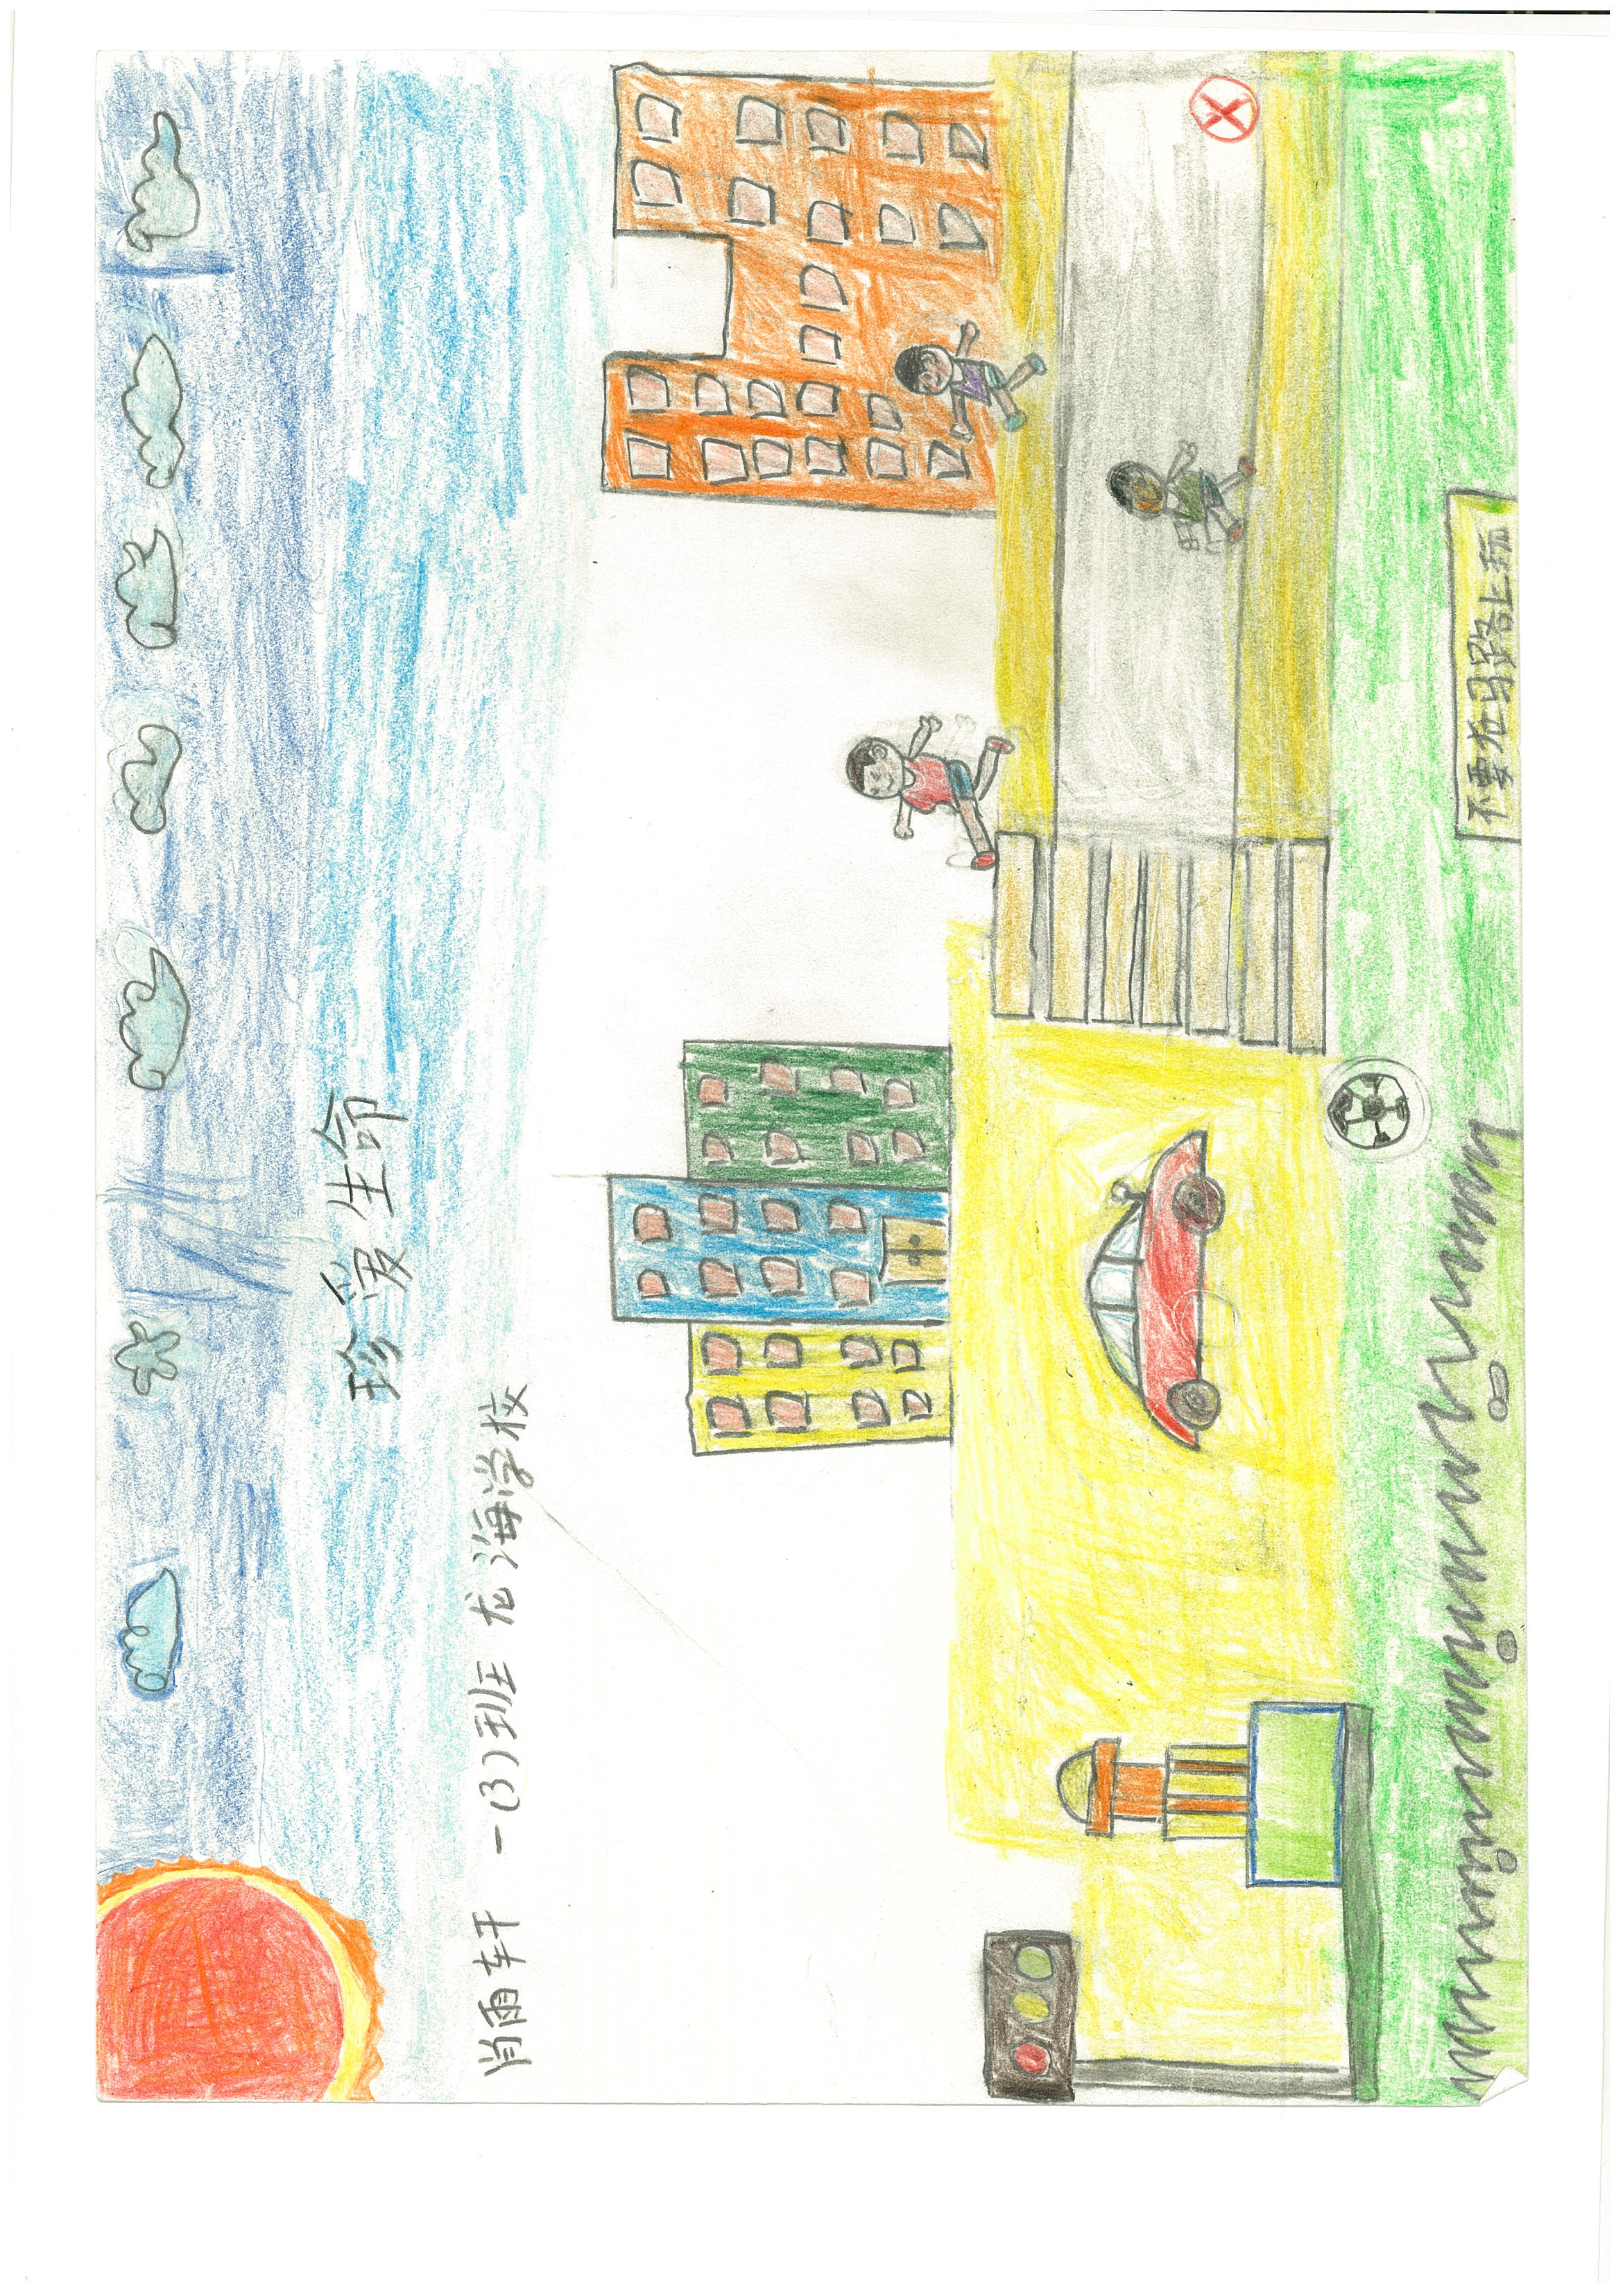 珍爱生命
肖雨轩 一(3)班 龙海学校
不要在马路上玩